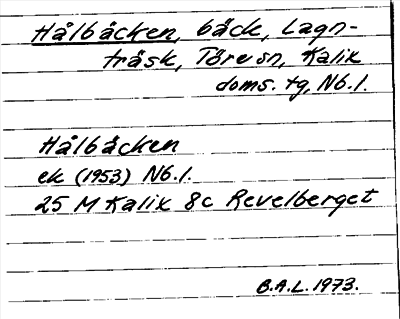 Hålbäcken, bäck, Lagn-
träsk, Töre sn, Kalix
doms. tg, Nb. l.
Hålbäcken
ek (1953) Nb. l.
25 M Kalix 8c Revelberget
B.A.L. 1973.